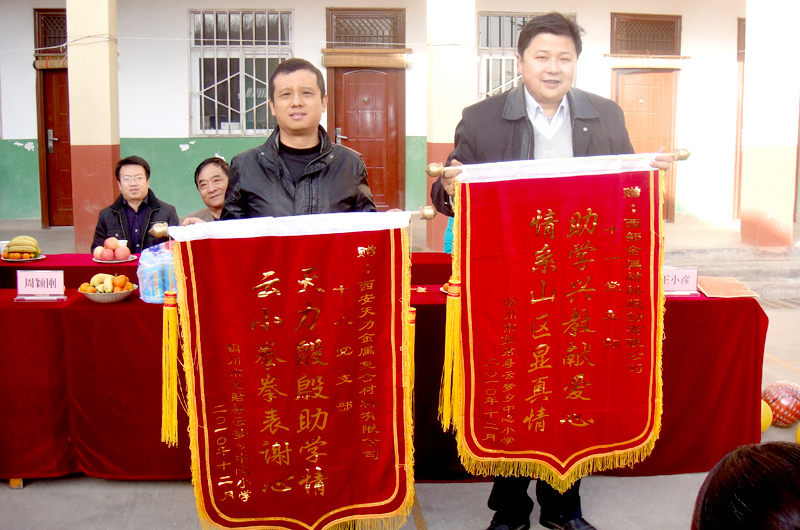 周颖刚
王小彦
赠：西安天力金属复合材料有限公司
十一党支部
天力殷殷助学情
云小拳拳表谢心
二〇一〇年十二月
赠：西部金属材料股份有限公司
十一党支部
助学兴教献爱心
情系山区显真情
铜川市宜君县云梦乡中心小学
二〇一〇年十二月